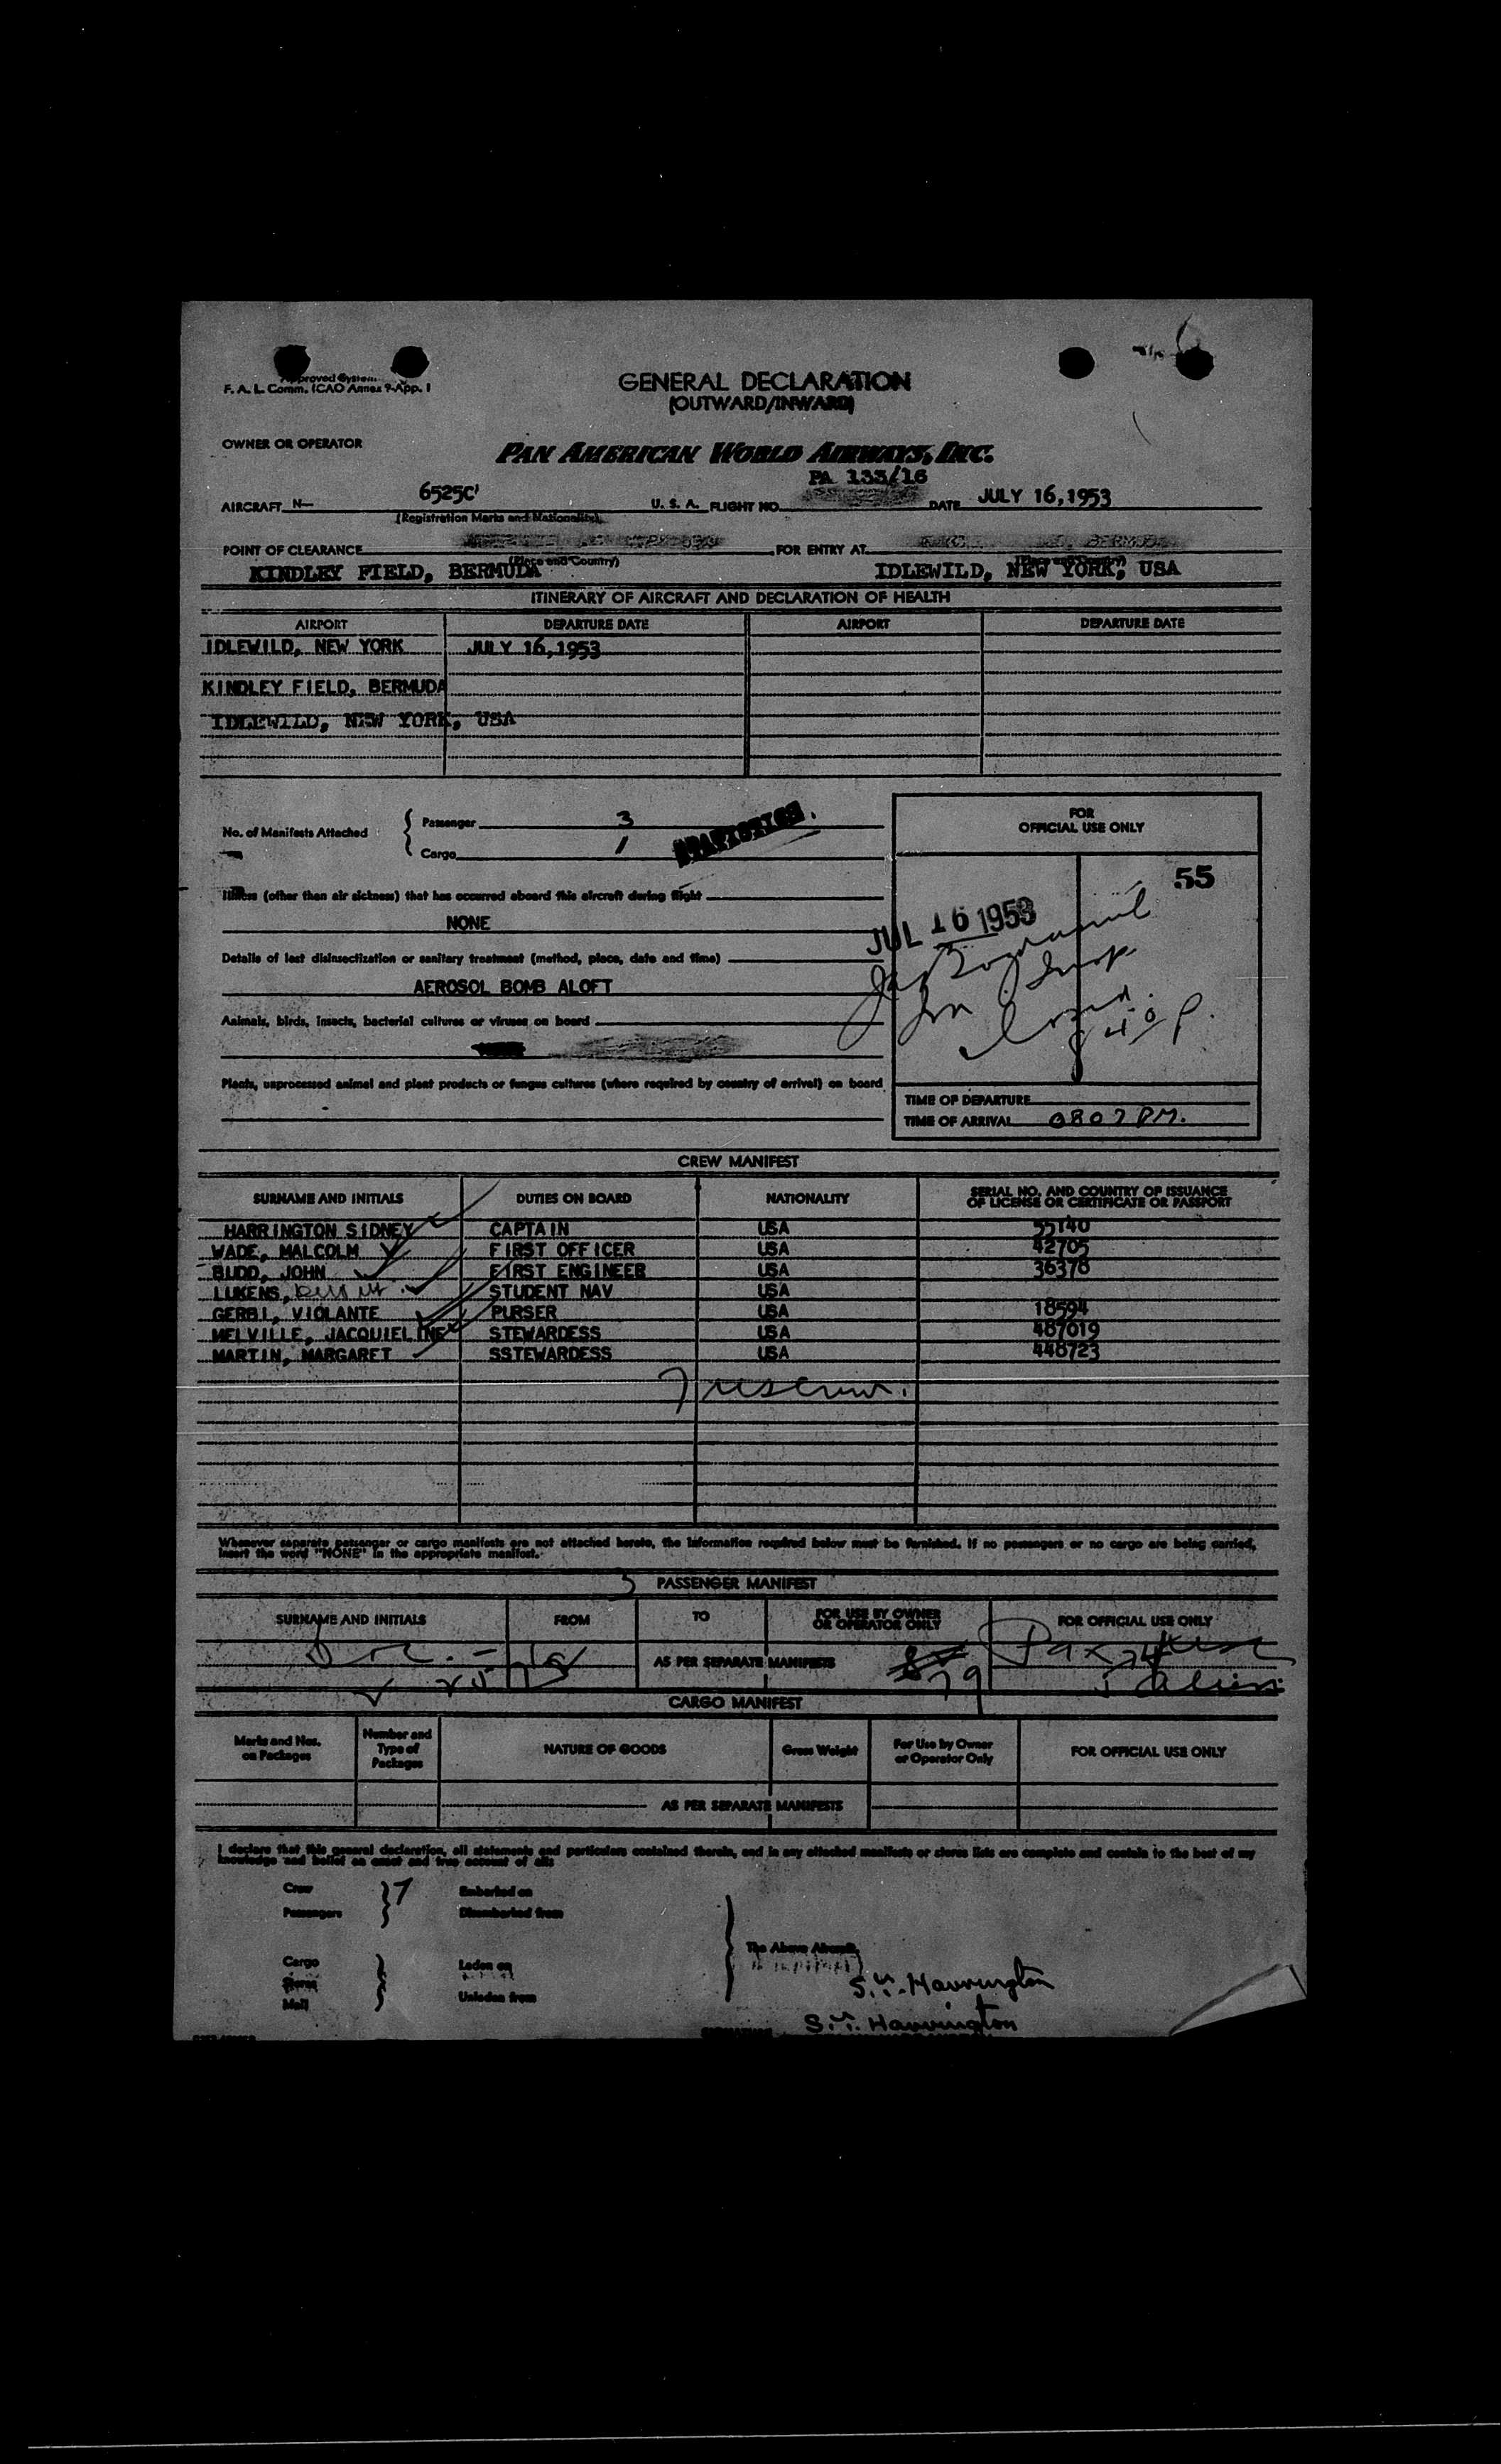 Approved System
F. A. L. Comm. ICAO Annex 9-App. 1
GENERAL DECLARATION
(OUTWARD/INWARD)
OWNER OR OPERATOR
PAN AMERICAN WORLD AIRWAYS, INC.
PA 133/16
AIRCRAFT N— 6525C U. S. A. FLIGHT NO. DATE JULY 16,1953
(Registration Marks and Nationality)
POINT OF CLEARANCE FOR ENTRY AT
(Place and Country)
KINDLEY FIELD, BERMUDA IDLEWILD, NEW YORK, USA
ITINERARY OF AIRCRAFT AND DECLARATION OF HEALTH
AIRPORT DEPARTURE DATE AIRPORT DEPARTURE DATE
IDLEWILD, NEW YORK JULY 16,1953
KINDLEY FIELD, BERMUDA
IDLEWILD, NEW YORK, USA
No. of Manifests Attached
Passenger 3
Cargo 1
STATISTICS.
FOR
OFFICIAL USE ONLY
55
JUL 16 1953
Illness (other than air sickness) that has occurred aboard this aircraft during flight
NONE
Details of last disinsectization or sanitary treatment (method, place, date and time)
AEROSOL BOMB ALOFT
Animals, birds, insects, bacterial cultures or viruses on board
Plants, unprocessed animal and plant products or fungus cultures (where required by country of arrival) on board
TIME OF DEPARTURE
TIME OF ARRIVAL 0807 PM.
CREW MANIFEST
SURNAME AND INITIALS DUTIES ON BOARD NATIONALITY SERIAL NO. AND COUNTRY OF ISSUANCE
OF LICENSE OR CERTIFICATE OR PASSPORT
HARRINGTON SIDNEY CAPTAIN USA 55140
WADE, MALCOLM FIRST OFFICER USA 42705
BUDD, JOHN FIRST ENGINEER USA 36378
LUKENS, STUDENT NAV USA
GERBI, VIOLANTE PURSER USA 18594
MELVILLE, JACQUIELINE STEWARDESS USA 487019
MARTIN, MARGARET SSTEWARDESS USA 448723
7 uscrew.
Whenever separate passenger or cargo manifests are not attached hereto, the information required below must be furnished. If no passengers or no cargo are being carried,
insert the word "NONE" in the appropriate manifest.
PASSENGER MANIFEST
SURNAME AND INITIALS FROM TO FOR USE BY OWNER
OR OPERATOR ONLY FOR OFFICIAL USE ONLY
AS PER SEPARATE MANIFESTS 79
CARGO MANIFEST
Marks and Nos.
on Packages
Number and
Type of
Packages
NATURE OF GOODS
Gross Weight
For Use by Owner
or Operator Only
FOR OFFICIAL USE ONLY
AS PER SEPARATE MANIFESTS
I declare that this general declaration, all statements and particulars contained therein, and in any attached manifests or stores lists are complete and contain to the best of my
knowledge and belief an exact and true account of all:
Crew 7 Embarked on
Passengers Disembarked from
The Above Aircraft.
Cargo Laden on
Stores
Mail Unladen from
S.Y. Harrington
S.Y. Harrington